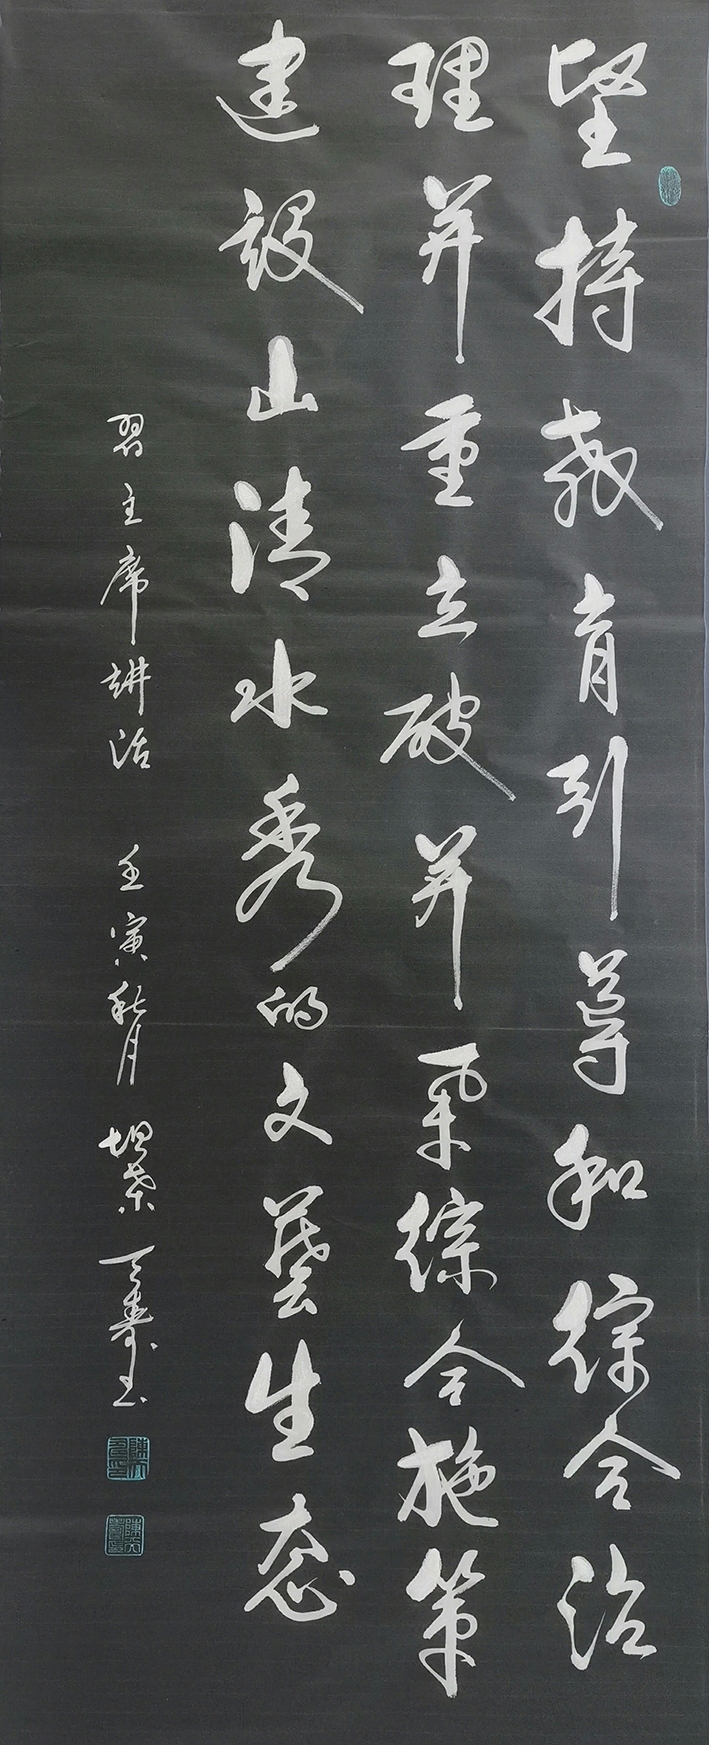 坚持教育引导和综合治
理并重立破并举综合施策
建设山清水秀的文藝生态
習主席讲话 壬寅秋月 天寿书